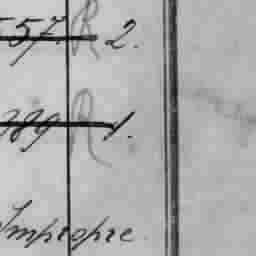 57. R 2.
389 R 1.
Impropre.